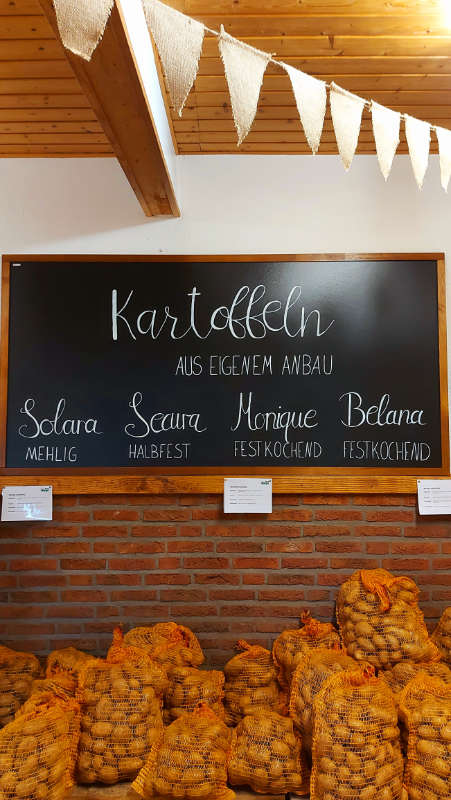 Kartoffeln
AUS EIGENEM ANBAU
Solara Secura Monique Belana
MEHLIG HALBFEST FESTKOCHEND FESTKOCHEND